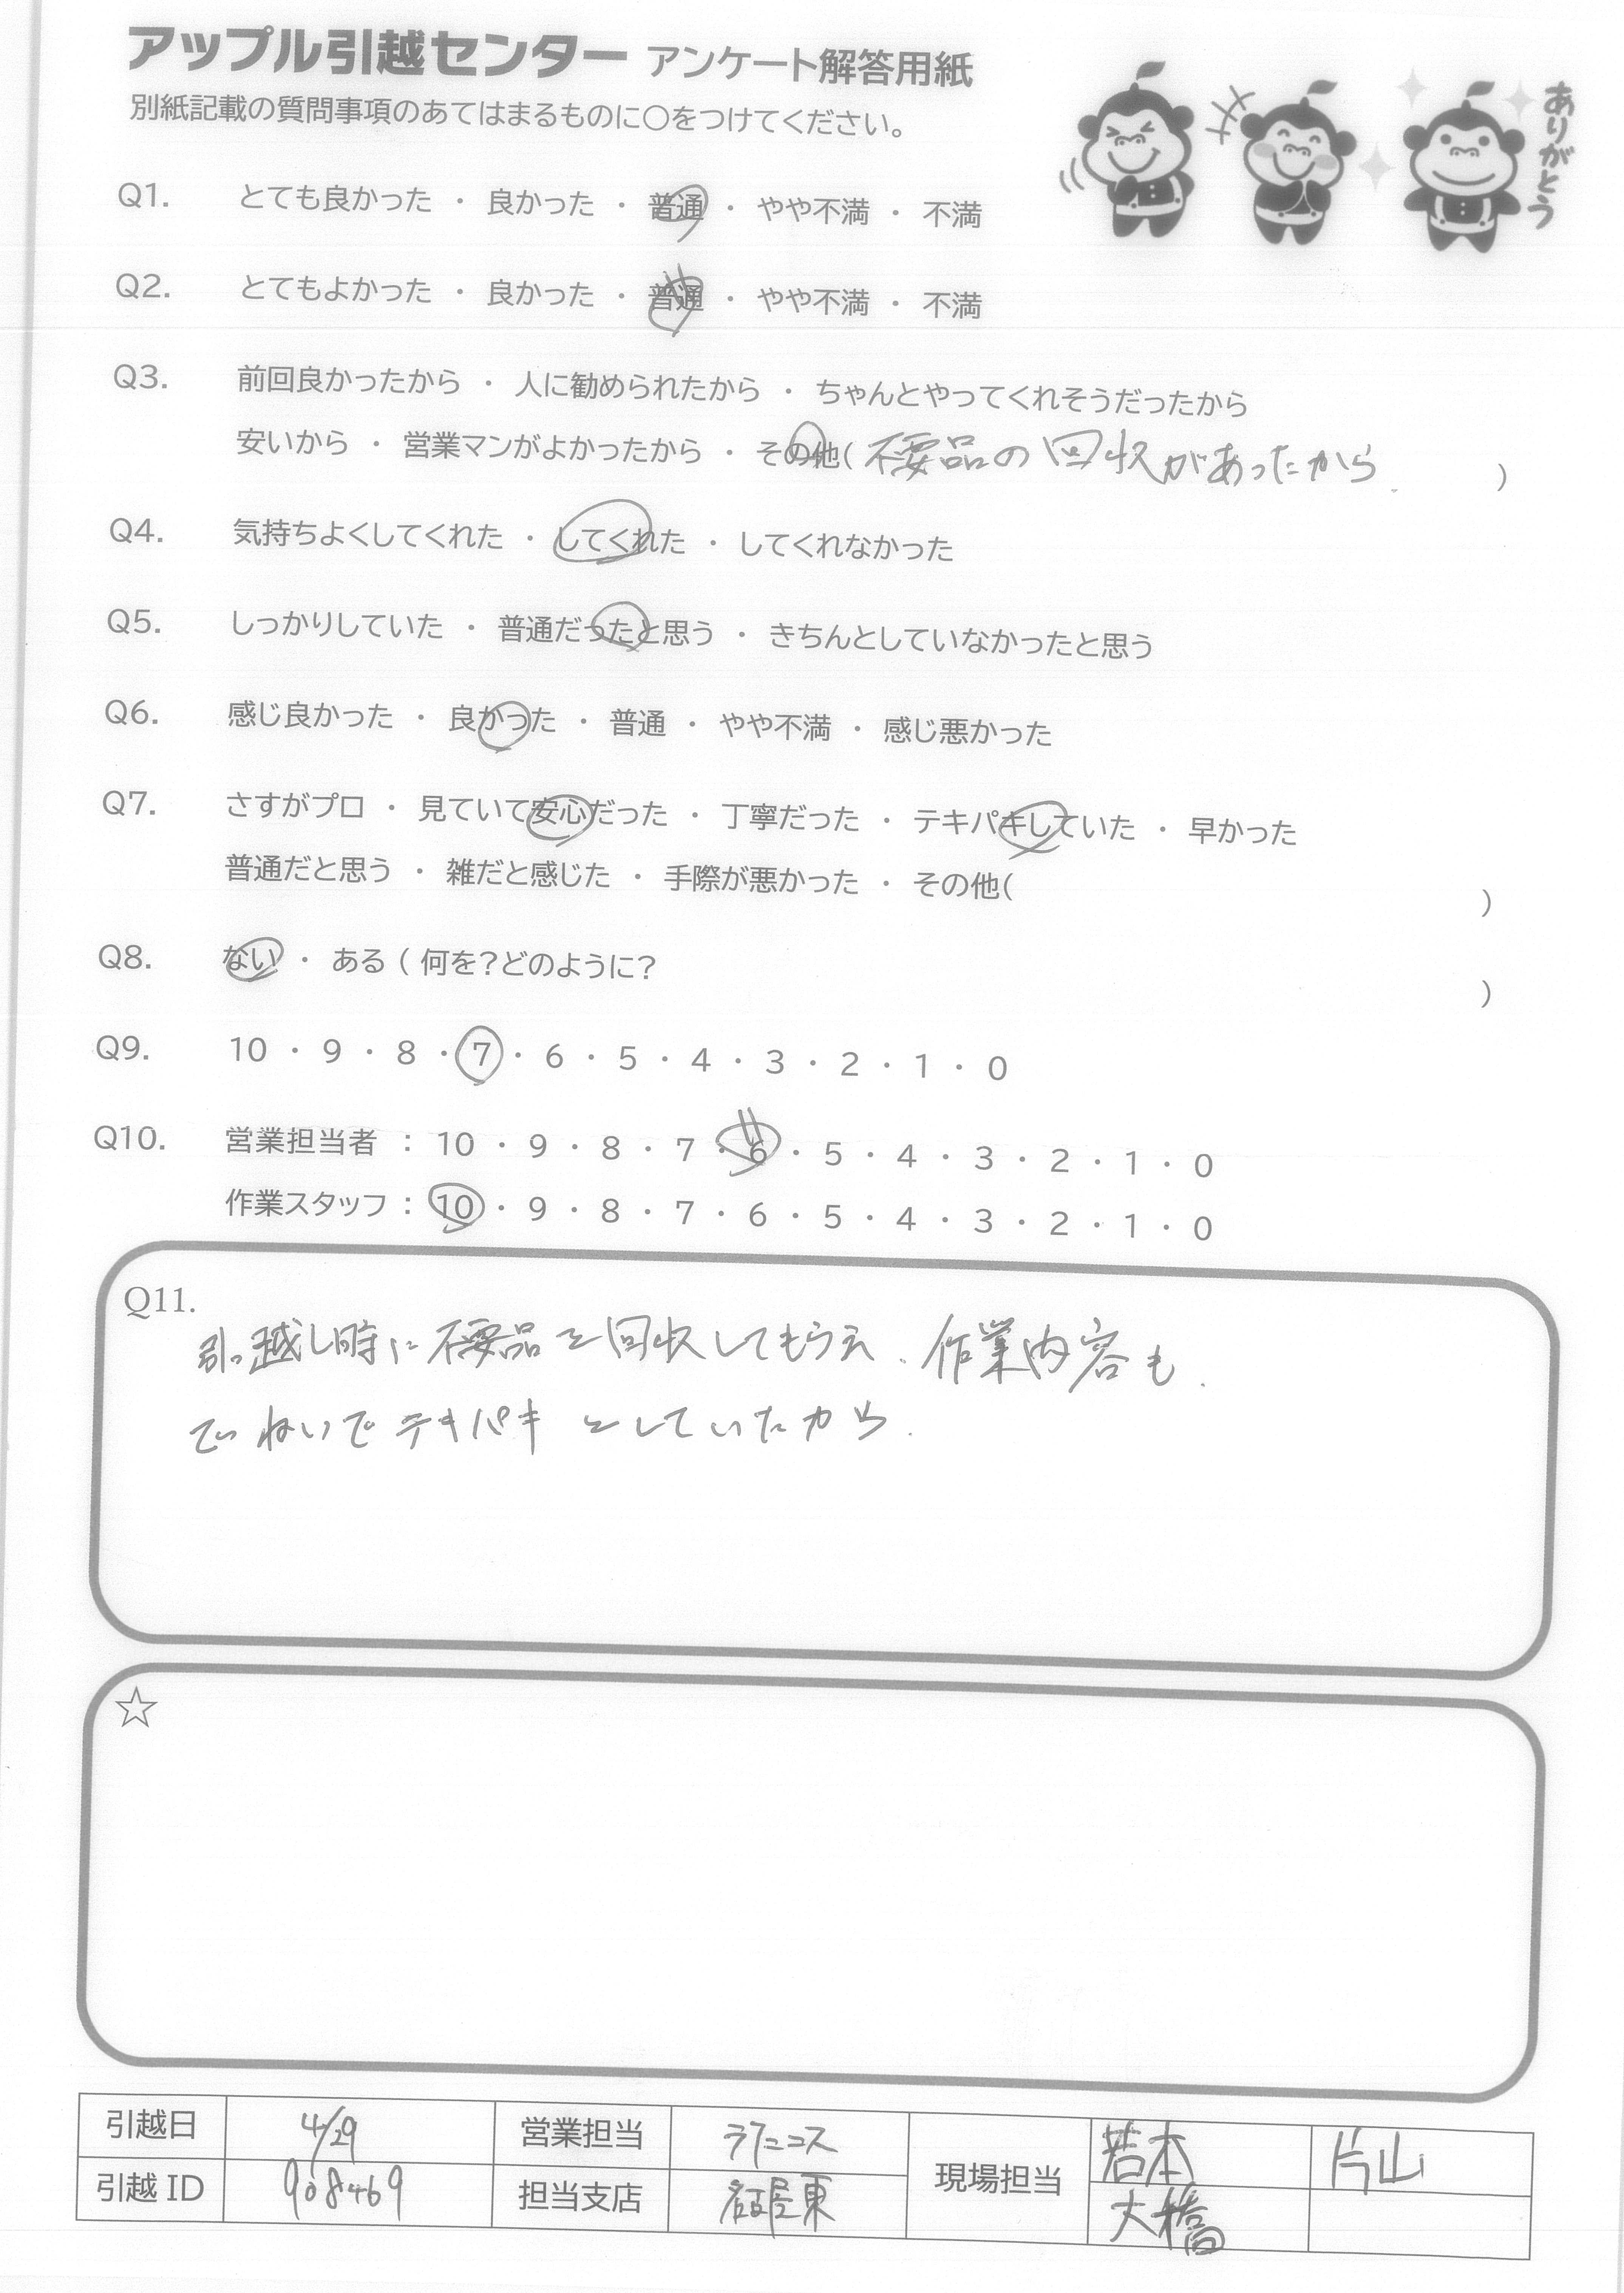 アップル引越センター アンケート解答用紙
別紙記載の質問事項のあてはまるものに○をつけてください。
ありがとう
Q1. とても良かった ・ 良かった ・ 普通 ・ やや不満 ・ 不満
Q2. とてもよかった ・ 良かった ・ 普通 ・ やや不満 ・ 不満
Q3. 前回良かったから ・ 人に勧められたから ・ ちゃんとやってくれそうだったから
安いから ・ 営業マンがよかったから ・ その他( 不要品の回収があったから. )
Q4. 気持ちよくしてくれた ・ してくれた ・ してくれなかった
Q5. しっかりしていた ・ 普通だったと思う ・ きちんとしていなかったと思う
Q6. 感じ良かった ・ 良かった ・ 普通 ・ やや不満 ・ 感じ悪かった
Q7. さすがプロ ・ 見ていて安心だった ・ 丁寧だった ・ テキパキしていた ・ 早かった
普通だと思う ・ 雑だと感じた ・ 手際が悪かった ・ その他( )
Q8. ない ・ ある ( 何を?どのように? )
Q9. 10 ・ 9 ・ 8 ・ 7 ・ 6 ・ 5 ・ 4 ・ 3 ・ 2 ・ 1 ・ 0
Q10. 営業担当者 : 10 ・ 9 ・ 8 ・ 7 ・ 6 ・ 5 ・ 4 ・ 3 ・ 2 ・ 1 ・ 0
作業スタッフ : 10 ・ 9 ・ 8 ・ 7 ・ 6 ・ 5 ・ 4 ・ 3 ・ 2 ・ 1 ・ 0
Q11.
引っ越し時に不要品を回収してもらえ、作業内容も、
ていねいでテキパキとしていたから.
☆
引越日 4/29 営業担当 現場担当 若本 片山
引越 ID 908469 担当支店 名古屋東 大橋